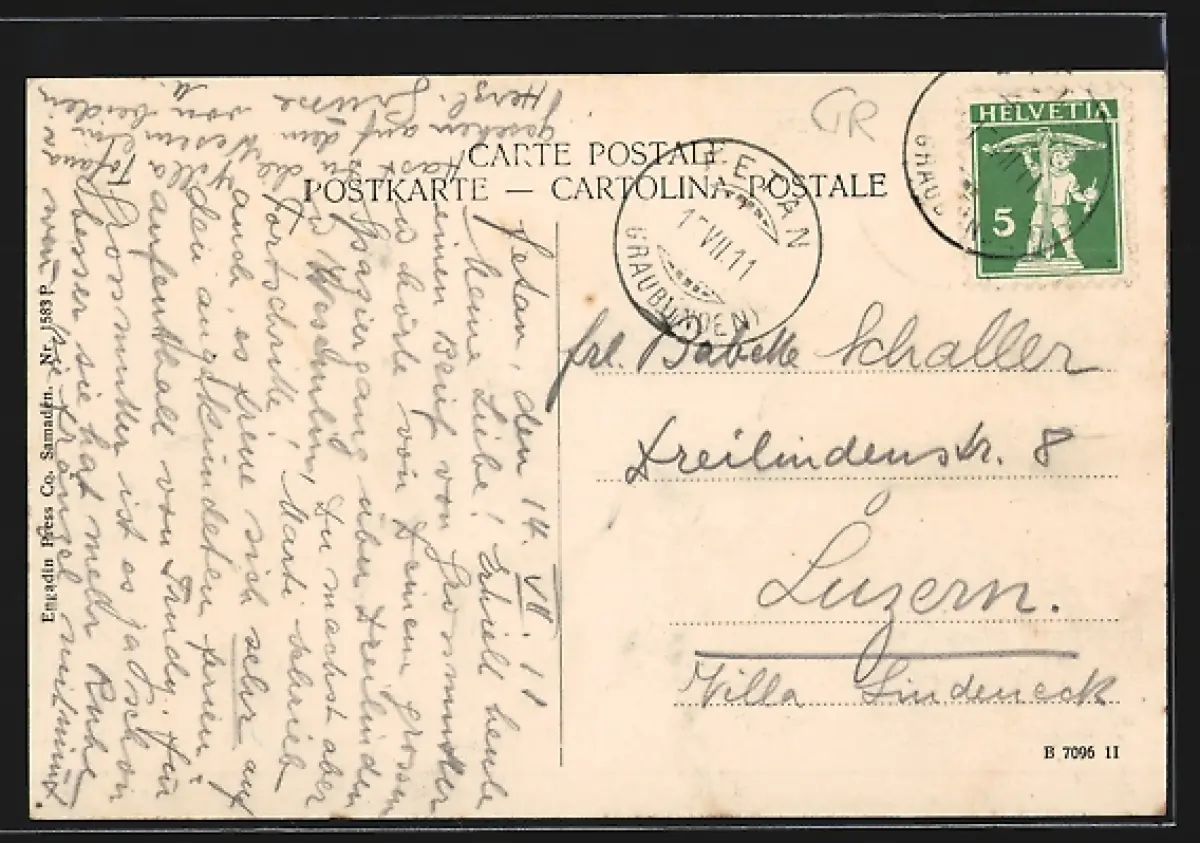 CARTE POSTALE
POSTKARTE — CARTOLINA POSTALE
GR
HELVETIA
5
FETAN
17 VII 11
(GRAUBÜNDEN)
GRAUB
Frl. Babette Schaller
Dreilindenstr. 8
Luzern.
Villa Lindeneck
B 7096 11
Fetan, den 14. VII. 11
Meine Liebe! Erhielt heute
einen Brief von Grossmutter
u hörte von Deinem grossen
Spaziergang über Dreilinden
Du machst aber
Fortschritte! Marti schrieb
auch, es freue sich sehr auf
den angekündeten Ferien-
aufenthalt von Trudy. Für
Grossmutter ist es ja schon
besser sie hat mehr Ruhe
wenn sie Fränzel mitnimmt.
Herzl. Grüsse
gesehen auf dem
von beiden
Engadin Press Co. Samaden. Nr. 1583 P.